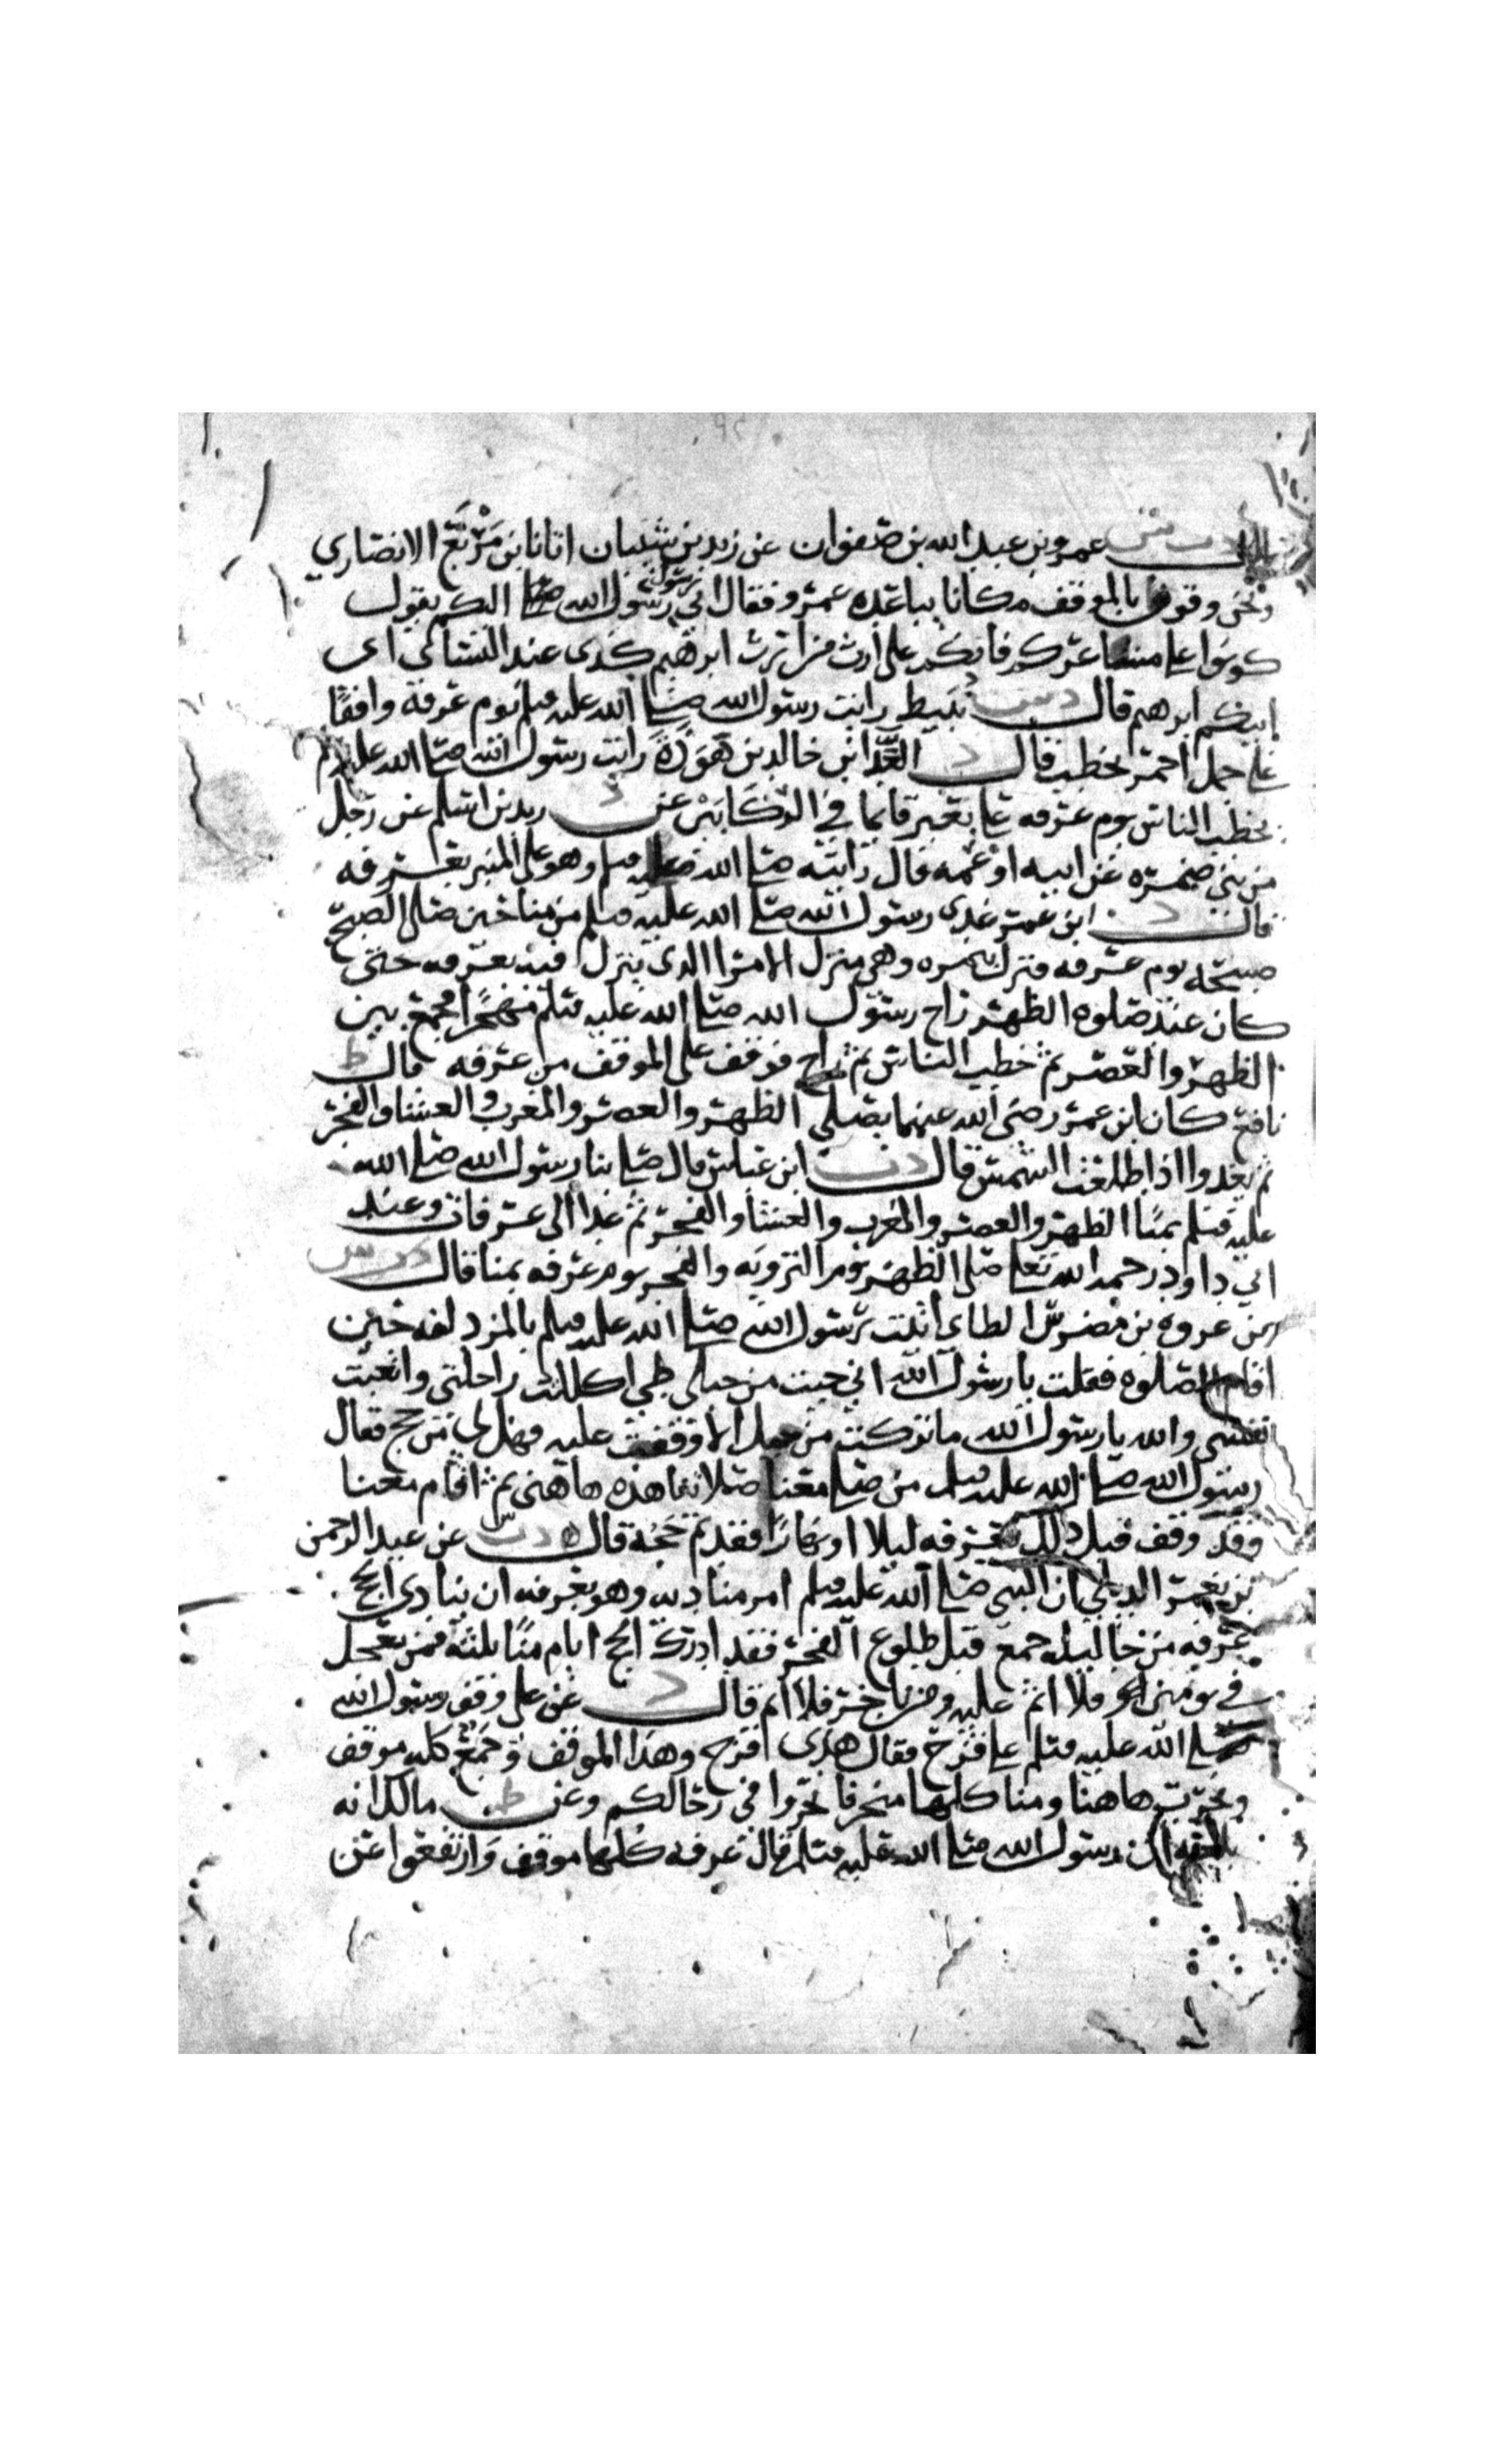 قال د ت س عمرو بن عبد الله بن صفوان عن زيد بن شيبان اتانا ابن مربع الانصاري
ونحن وقوفا بالموقف مكانا يباعده عمرو فقال اني رسول رسول الله صلى اليكم يقول
كونوا على مشاعركم فانكم على ارث من ارث ابرهيم كذى عند النسائي اى
ابيكم ابرهيم قال د س نبيط رايت رسول الله صلى الله عليه وسلم يوم عرفة واقفا
على جمل احمر يخطب قال د العداابن خالد بن هوذة رايت رسول الله صلى الله عليه وسلم
يخطب الناس يوم عرفه على بعير قائما في الركابين عن د زيد بن اسلم عن رجل
من بني ضمره عن ابيه او عمه قال رايته صلى الله عليه وسلم وهو على المنبر بعرفه
قال د ابن عمر غدى رسول الله صلى الله عليه وسلم من منا حين صلى الصبح
صبيحة يوم عرفه فنزل بنمره وهى منزل الامرا الذى ينزل فيه بعرفه حتى
كان عند صلوه الظهر راح رسول الله صلى الله عليه وسلم مهجرا فجمع بين
الظهر والعصر ثم خطب الناس ثم راح فوقف على الموقف من عرفه قال ط
نافع كان ابن عمر رضى الله عنهما يصلي الظهر والعصر والمغرب والعشا والفجر
ثم يغدوا اذا طلعت الشمس قال د ت ابن عباس قال صلى بنا رسول الله صلى الله
عليه وسلم بمنا الظهر والعصر والمغرب والعشا والفجر ثم غدا الى عرفات وعند
ابي داود رحمه الله تعلى صلى الظهر يوم التروية والفجر يوم عرفه بمنا قال د ت س
عن عروه بن مضرس الطاي اتيت رسول الله صلى الله عليه وسلم بالمزدلفه حين
اقام الصلوه فقلت يا رسول الله اني جيت من جبلى طي اكللت راحلتى واتعبت
نفسى والله يا رسول الله ما تركت من جبل الا وقفت عليه فهل لي من حج فقال
رسول الله صلى الله عليه وسلم من صلى معنا صلاتنا هذه هاهنى ثم اقام معنا
وقد وقف قبل ذلك بعرفه ليلا او نهارا فقد تم حجه قال د ت س عن عبد الرحمن
بن يعمر الديلي ان النبي صلى الله عليه وسلم امر مناديه وهو بعرفه ان ينادي الحج
عرفه من جا ليله جمع قبل طلوع الفجر فقد ادرك الحج ايام منا ثلثة فمن تعجل
في يومين فلا اثم عليه ومن تاخر فلا اثم قال د عن على وقف رسول الله
صلى الله عليه وسلم على قزح فقال هذى قزح وهذا الموقف وجمع كله موقف
ونحرت هاهنا ومنا كلها منحر فانحروا في رحالكم وعن ط مالك انه
بلغه ان رسول الله صلى الله عليه وسلم قال عرفه كلها موقف وارتفعوا عن